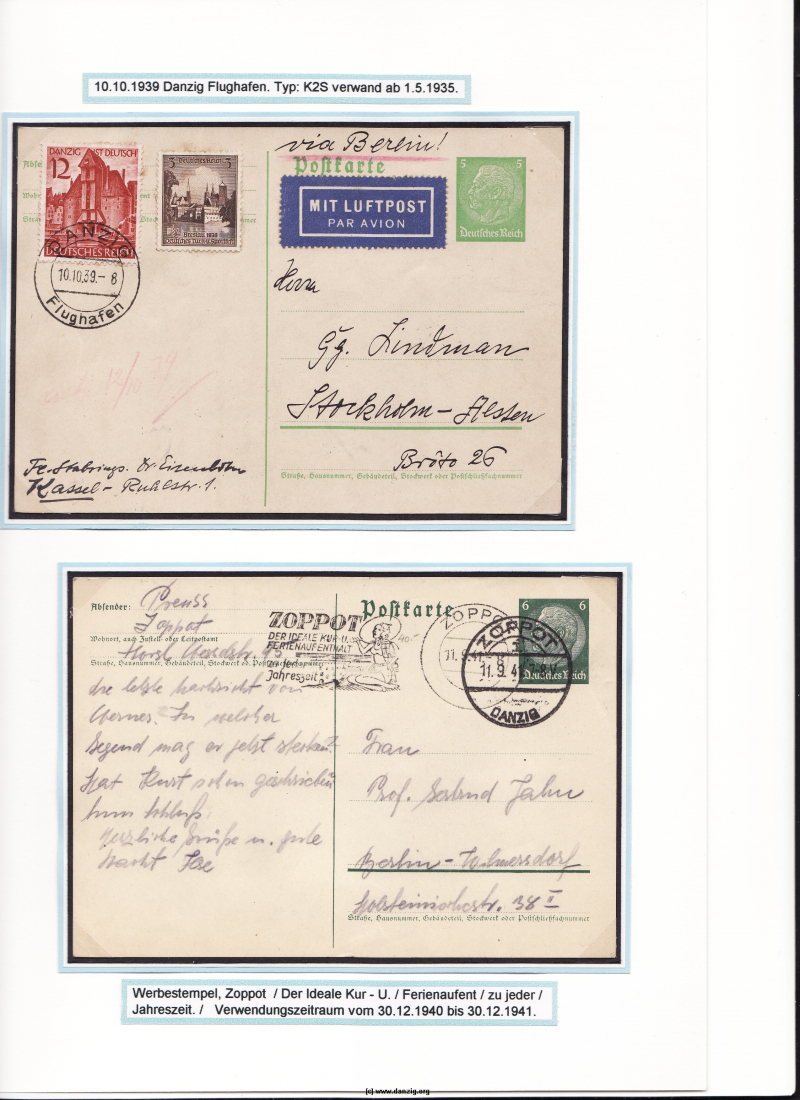 10.10.1939 Danzig Flughafen. Typ: K2S verwand ab 1.5.1935.
via Berlin!
Postkarte
DANZIG IST DEUTSCH
12
DEUTSCHES REICH
3 Deutsches Reich 3
Breslau 1938
Deutsches Turn- u. Sportfest
5 5
Deutsches Reich
MIT LUFTPOST
PAR AVION
DANZIG
10.10.39.- 8
Flughafen
Herrn
Gg. Lindman
Stockholm-Alsten
Bröto 26
Straße, Hausnummer, Gebäudeteil, Stockwerk oder Postschließfachnummer
Kassel - Ruhlstr. 1.
Absender: Preuss
Zoppot
Wohnort, auch Zustell- oder Leitpostamt
Straße, Hausnummer, Gebäudeteil, Stockwerk od. Postschließfachnummer
Postkarte
ZOPPOT
DER IDEALE KUR-U.
FERIENAUFENTHALT
zu jeder
Jahreszeit
ZOPPOT
ZOPPOT
11.9.41
DANZIG
6 6
Deutsches Reich
die letzte Nachricht von
Werner. In welcher
Gegend mag er jetzt stecken?
Hat Kurt schon geschrieben
Zum Schluß
Herzliche Grüße u. gute
Nacht Ilse
Frau
Prof. Gertrud Jahn
Berlin-Wilmersdorf
Holsteinischestr. 38 I
Straße, Hausnummer, Gebäudeteil, Stockwerk oder Postschließfachnummer
Werbestempel, Zoppot / Der Ideale Kur - U. / Ferienaufent / zu jeder /
Jahreszeit. / Verwendungszeitraum vom 30.12.1940 bis 30.12.1941.
(c) www.danzig.org